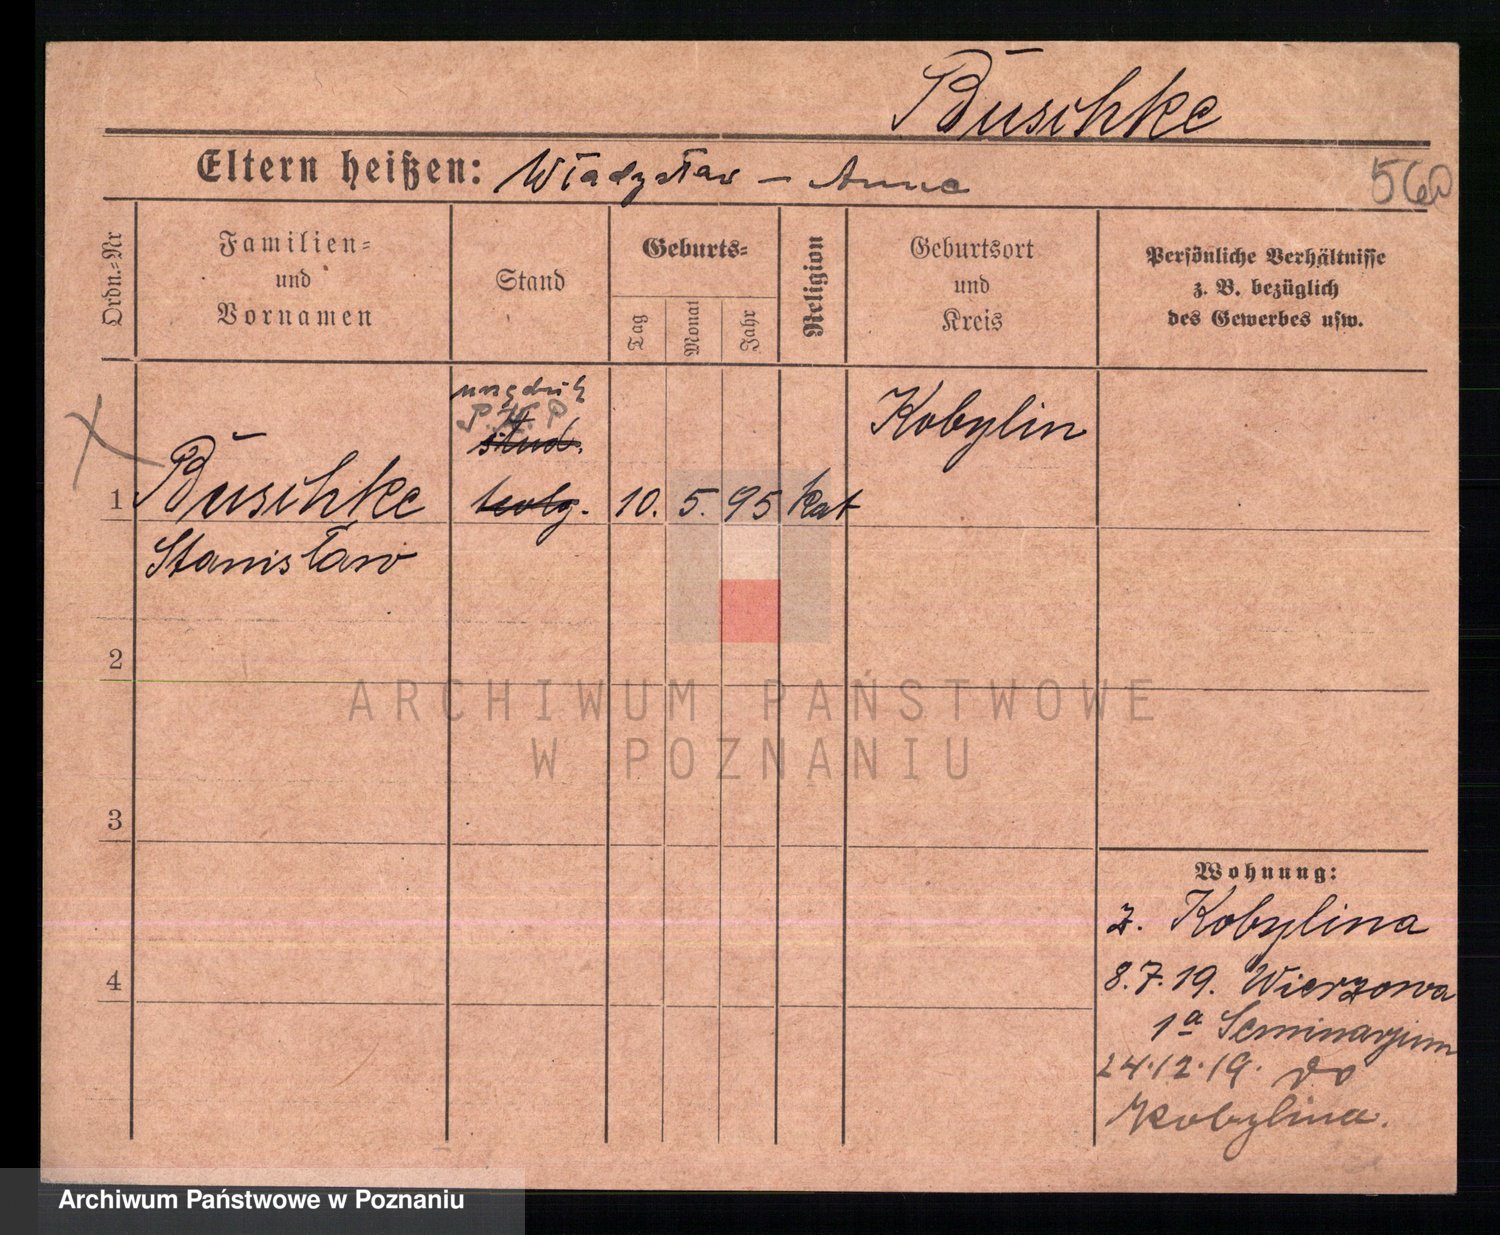 Buschke
Eltern heißen: Władysław — Anna
560
Ordn.-Nr
Familien-
und
Vornamen
Stand
Geburts-
Tag
Monat
Jahr
Religion
Geburtsort
und
Kreis
Persönliche Verhältnisse
z. B. bezüglich
des Gewerbes usw.
P.K.P
stud.
Kobylin
1 Buschke teolg. 10. 5. 95 kat
Stanisław
2
3
4
Wohnung:
z. Kobylina
8.7.19. Wieżowa
1a Seminarjum
24.12.19. do
Kobylina.
ARCHIWUM PAŃSTWOWE
W POZNANIU
Archiwum Państwowe w Poznaniu